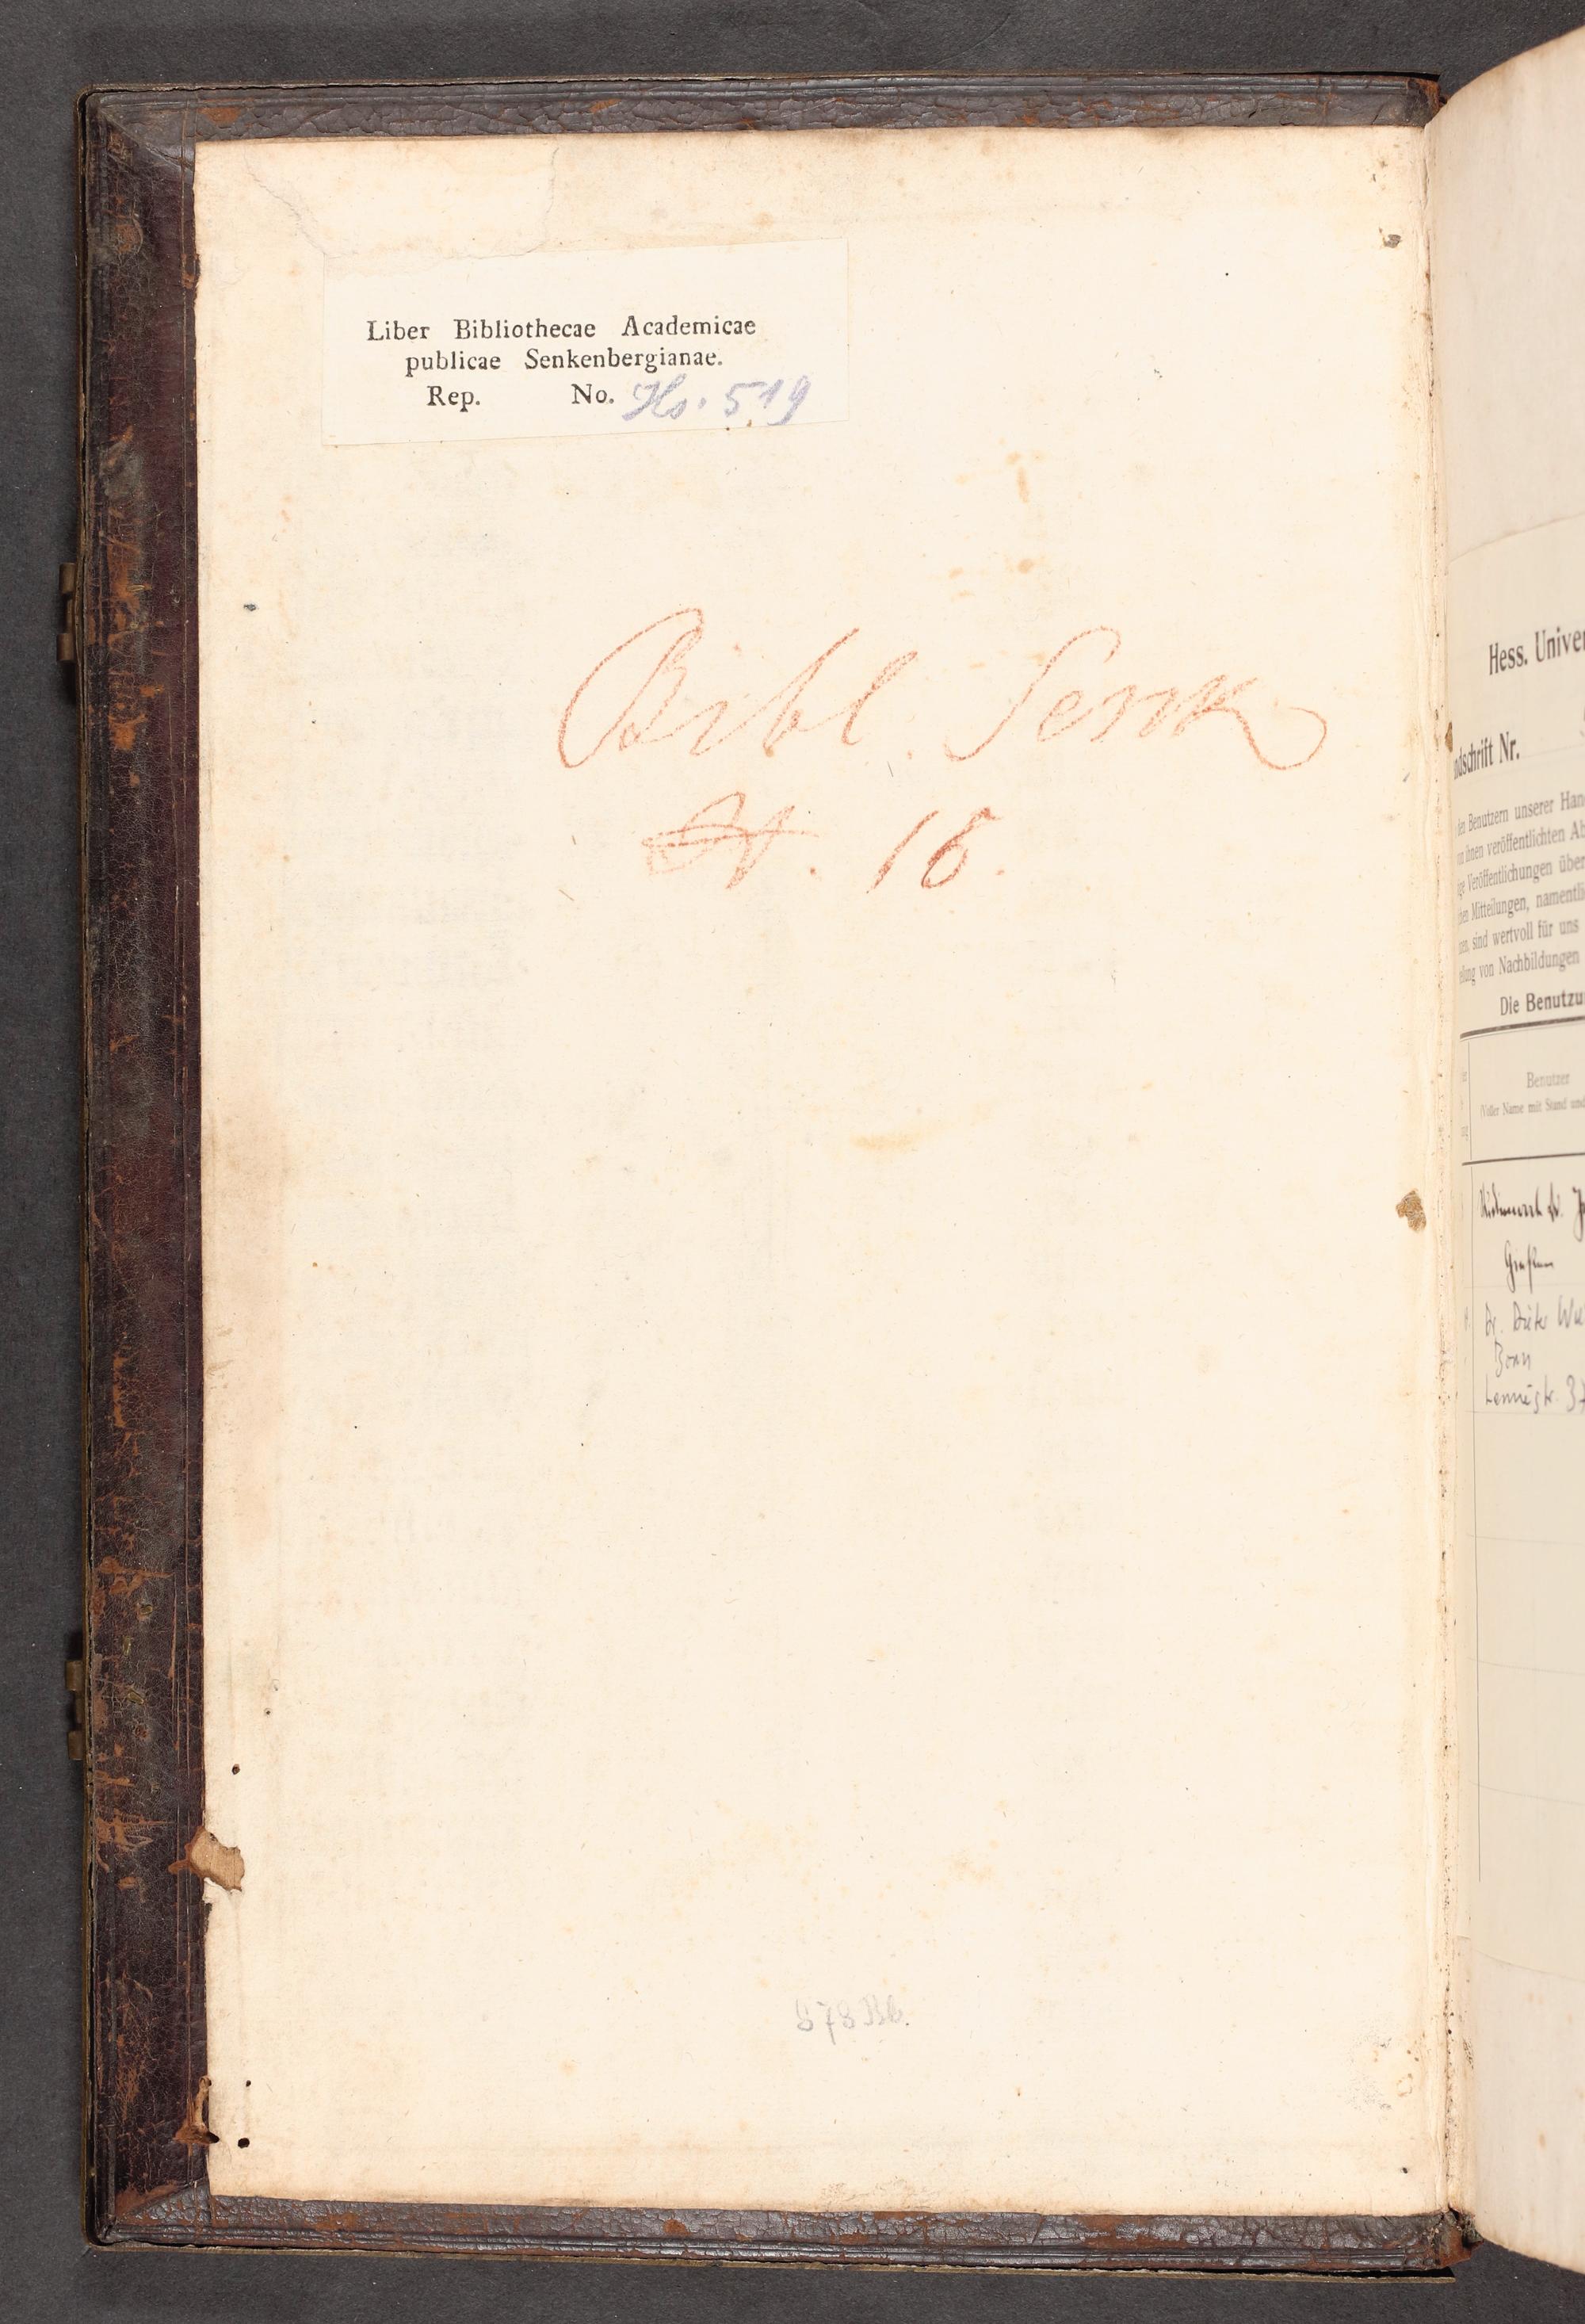 Liber Bibliothecae Academicae
publicae Senkenbergianae.
Rep. No. Hs. 519
Bibl. Senk
N. 16.
578 Bb.
Hess. Univer
ndschrift Nr.
den Benutzern unserer Han
on ihnen veröffentlichten Ab
ige Veröffentlichungen über
chen Mitteilungen, namentli
sind wertvoll für uns
ellung von Nachbildungen
Die Benutzu
Benutzer
(Voller Name mit Stand und
Gießen
Dr. Dieter
Bonn
Lennéstr. 37